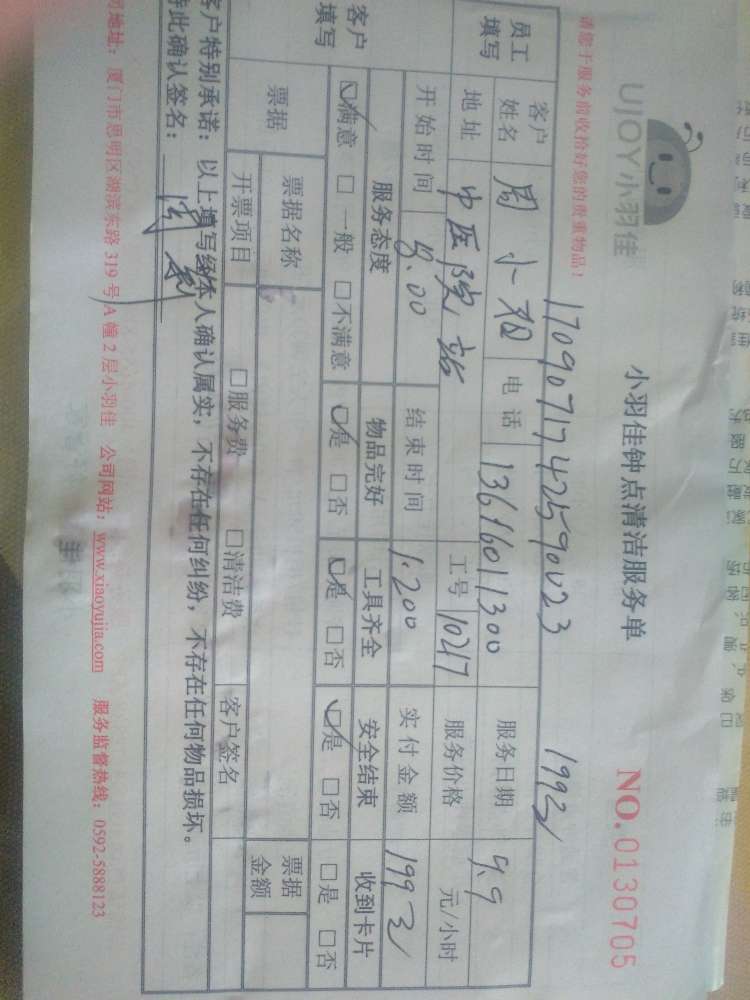 UJOY小羽佳
小羽佳钟点清洁服务单
NO.0130705
请您于服务前收拾好您的贵重物品!
1709071742590023
1993/
员工填写
客户姓名 周小姐 电话 13616011300 服务日期 9.9
地址 中医院站 工号 10217 服务价格 元/小时
开始时间 9.00 结束时间 1.200 实付金额 1993/
客户填写
服务态度 物品完好 工具齐全 安全结束 收到卡片
☑满意 □一般 □不满意 ☑是 □否 ☑是 □否 ☑是 □否 □是 □否
票据 票据名称 票据金额
开票项目 □服务费 □清洁费 客户签名
客户特别承诺:以上填写经本人确认属实,不存在任何纠纷,不存在任何物品损坏。
特此确认签名:
司地址:厦门市思明区湖滨东路319号A幢2层小羽佳 公司网站:www.xiaoyujia.com 服务监督热线:0592-5888123